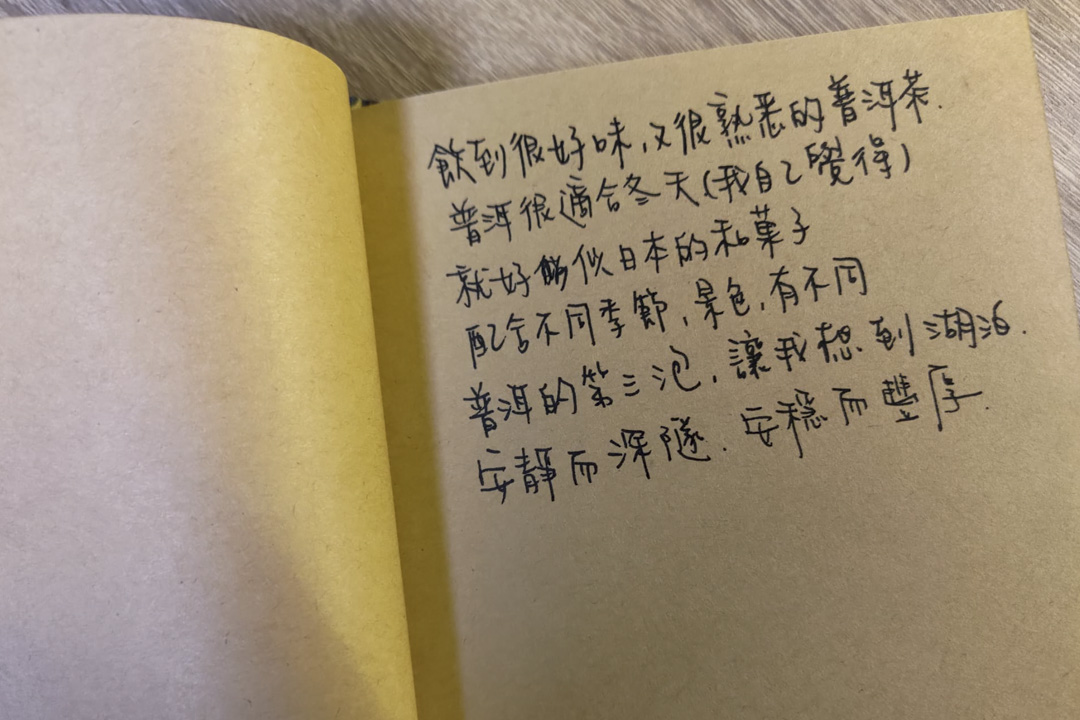 飲到很好味,又很熟悉的普洱茶.
普洱很適合冬天(我自己覺得)
就好似日本的和菓子
配合不同季節,景色,有不同
普洱的第三泡,讓我想到湖泊.
安靜而深隧.安穩而豐厚.